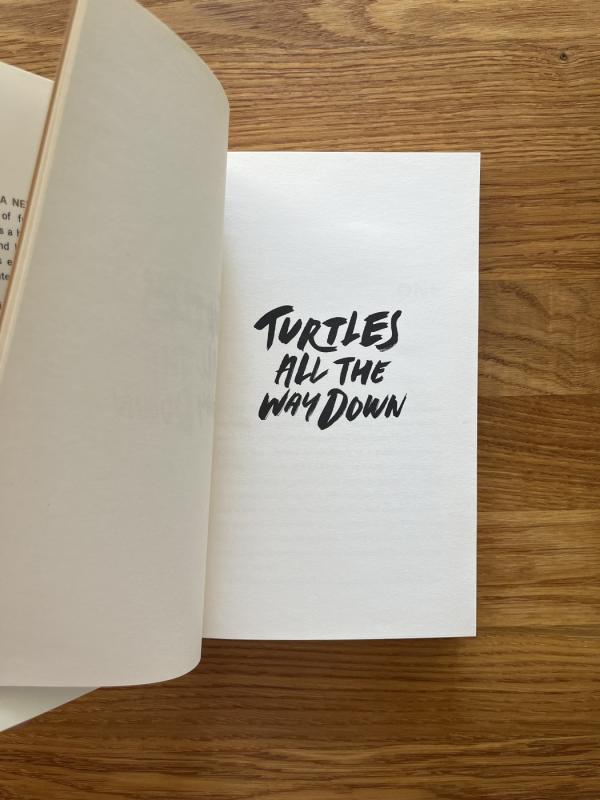 A NE
of f
s a h
nd
s e
TURTLES
ALL THE
WAY DOWN